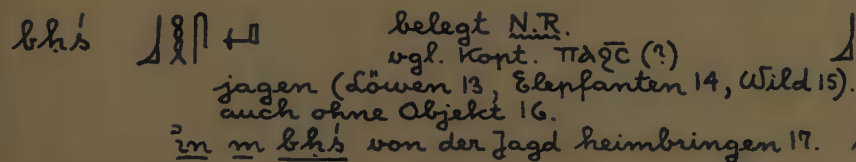 bḥś 𓃀𓎛𓋴 belegt N.R.
vgl. Kopt. ⲡⲁϩⲥ̄ (?)
jagen (Löwen 13, Elepfanten 14, Wild 15).
auch ohne Objekt 16.
ỉn m bḥś von der Jagd heimbringen 17.